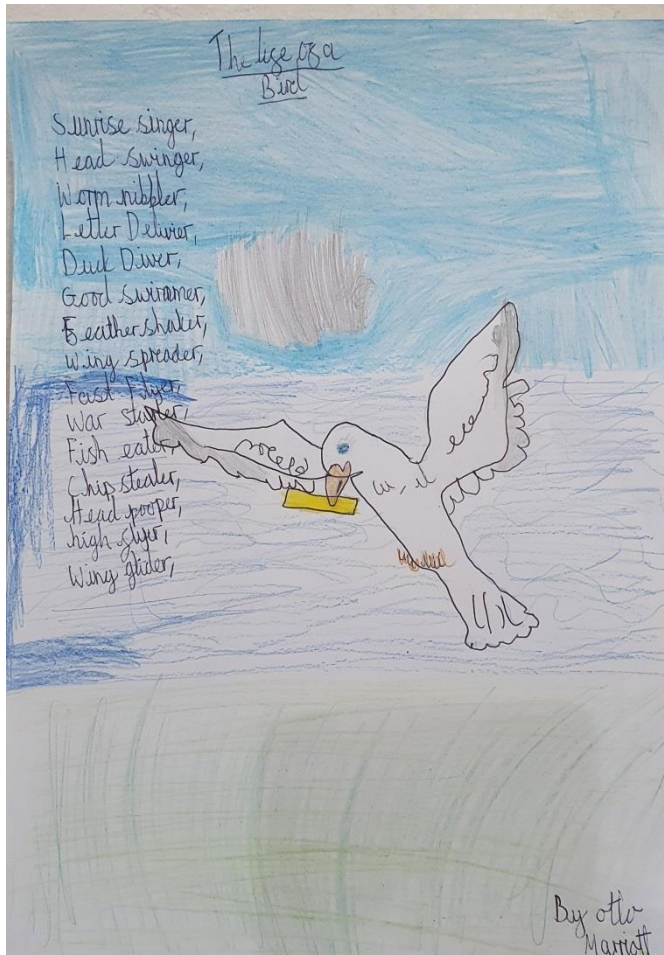 The life of a
Bird
Sunrise singer,
Head swinger,
Worm nibbler,
Letter Delivier,
Duck Diver,
Good swimmer,
Feather shaker,
Wing spreader,
Fast Flyer,
War starter,
Fish eater,
Chip stealer,
Head pooper,
high flyer,
Wing glider,
By otto
Marriott